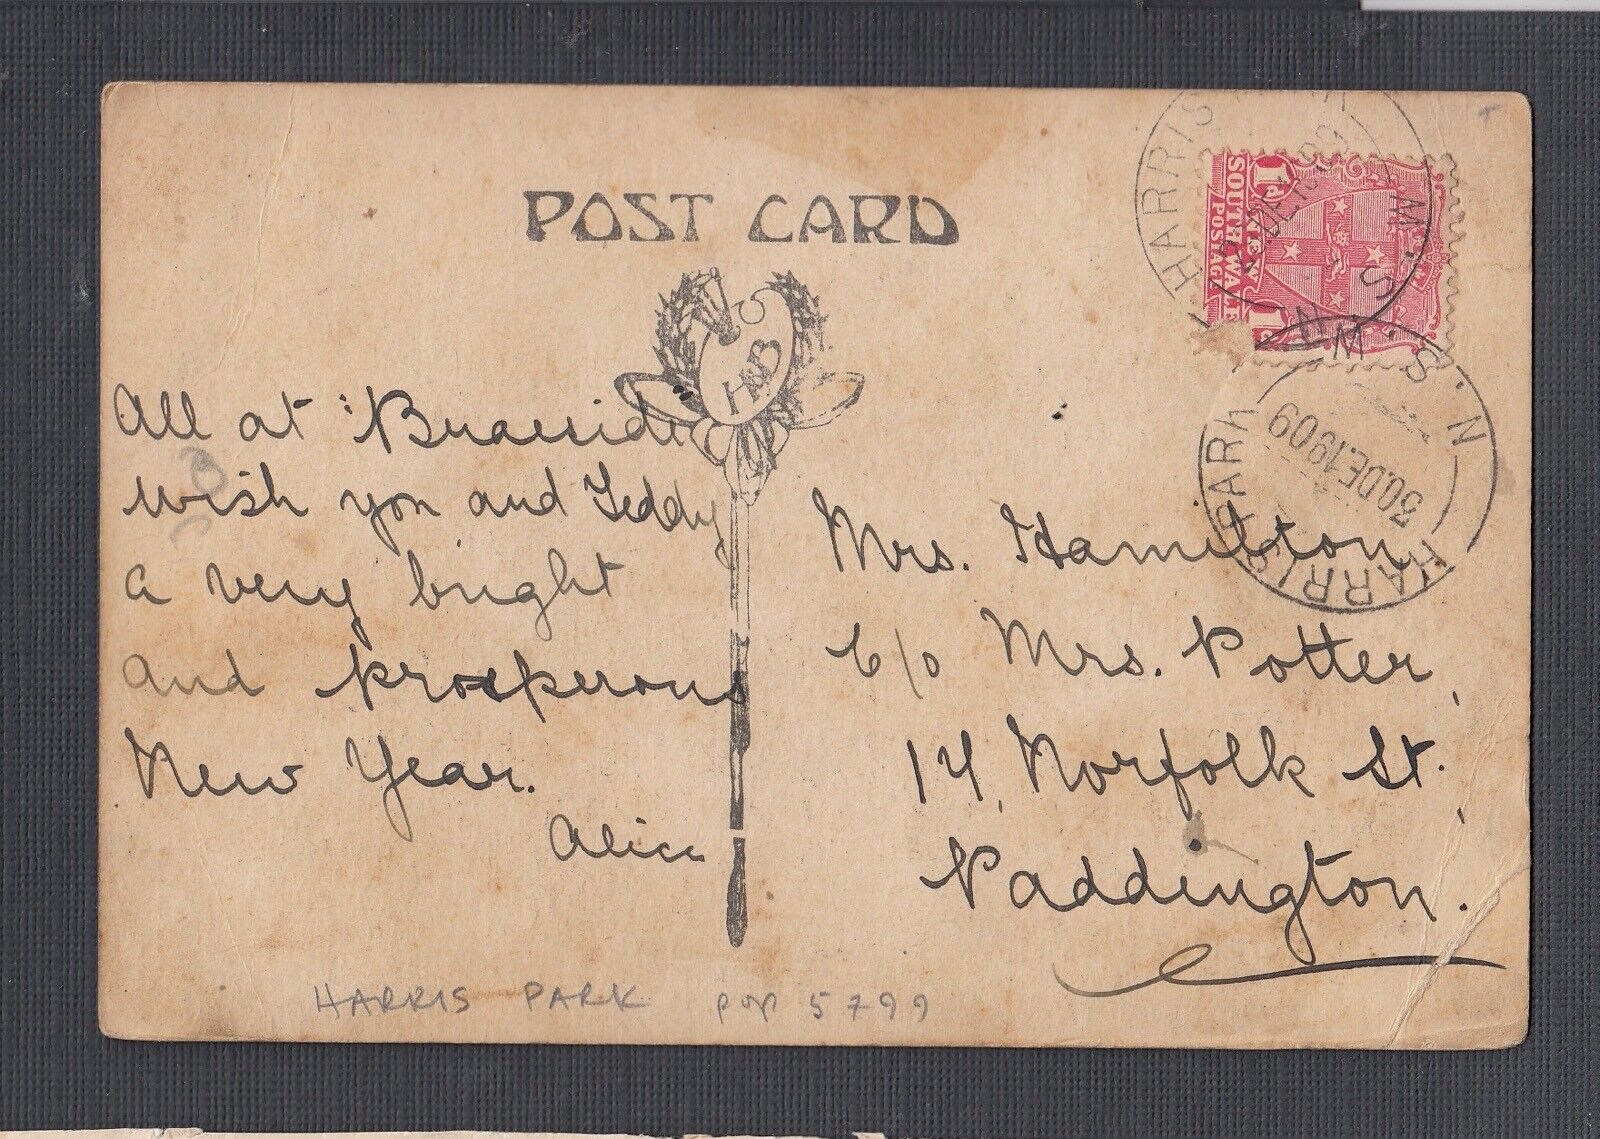 POST CARD
H&B
All at "Braeside"
wish you and Teddy
a very bright
and prosperous
New Year.
Alice
Mrs. Hamilton
c/o Mrs. Potter,
14, Norfolk St.,
Paddington.
1d NEW 1d
SOUTH WALES
POSTAGE
HARRIS
N.S.W.
DE 1909
HARRIS PARK
N.S.W
30.DE.1909
HARRIS PARK pop 5799